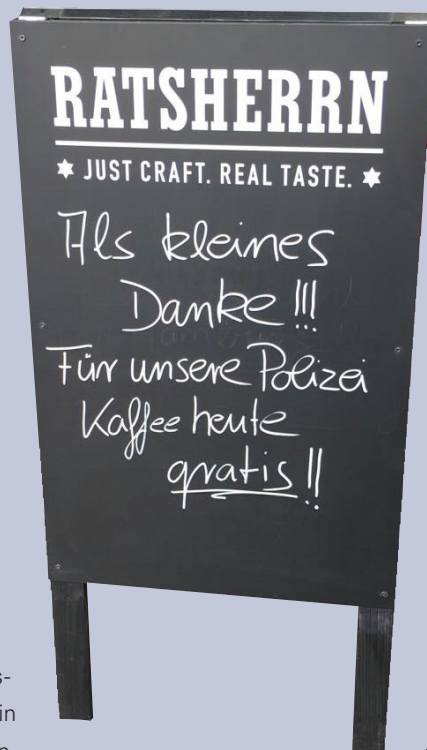 RATSHERRN
JUST CRAFT. REAL TASTE.
Als kleines
Danke!!!
Für unsere Polizei
Kaffee heute
gratis!!
s-
in